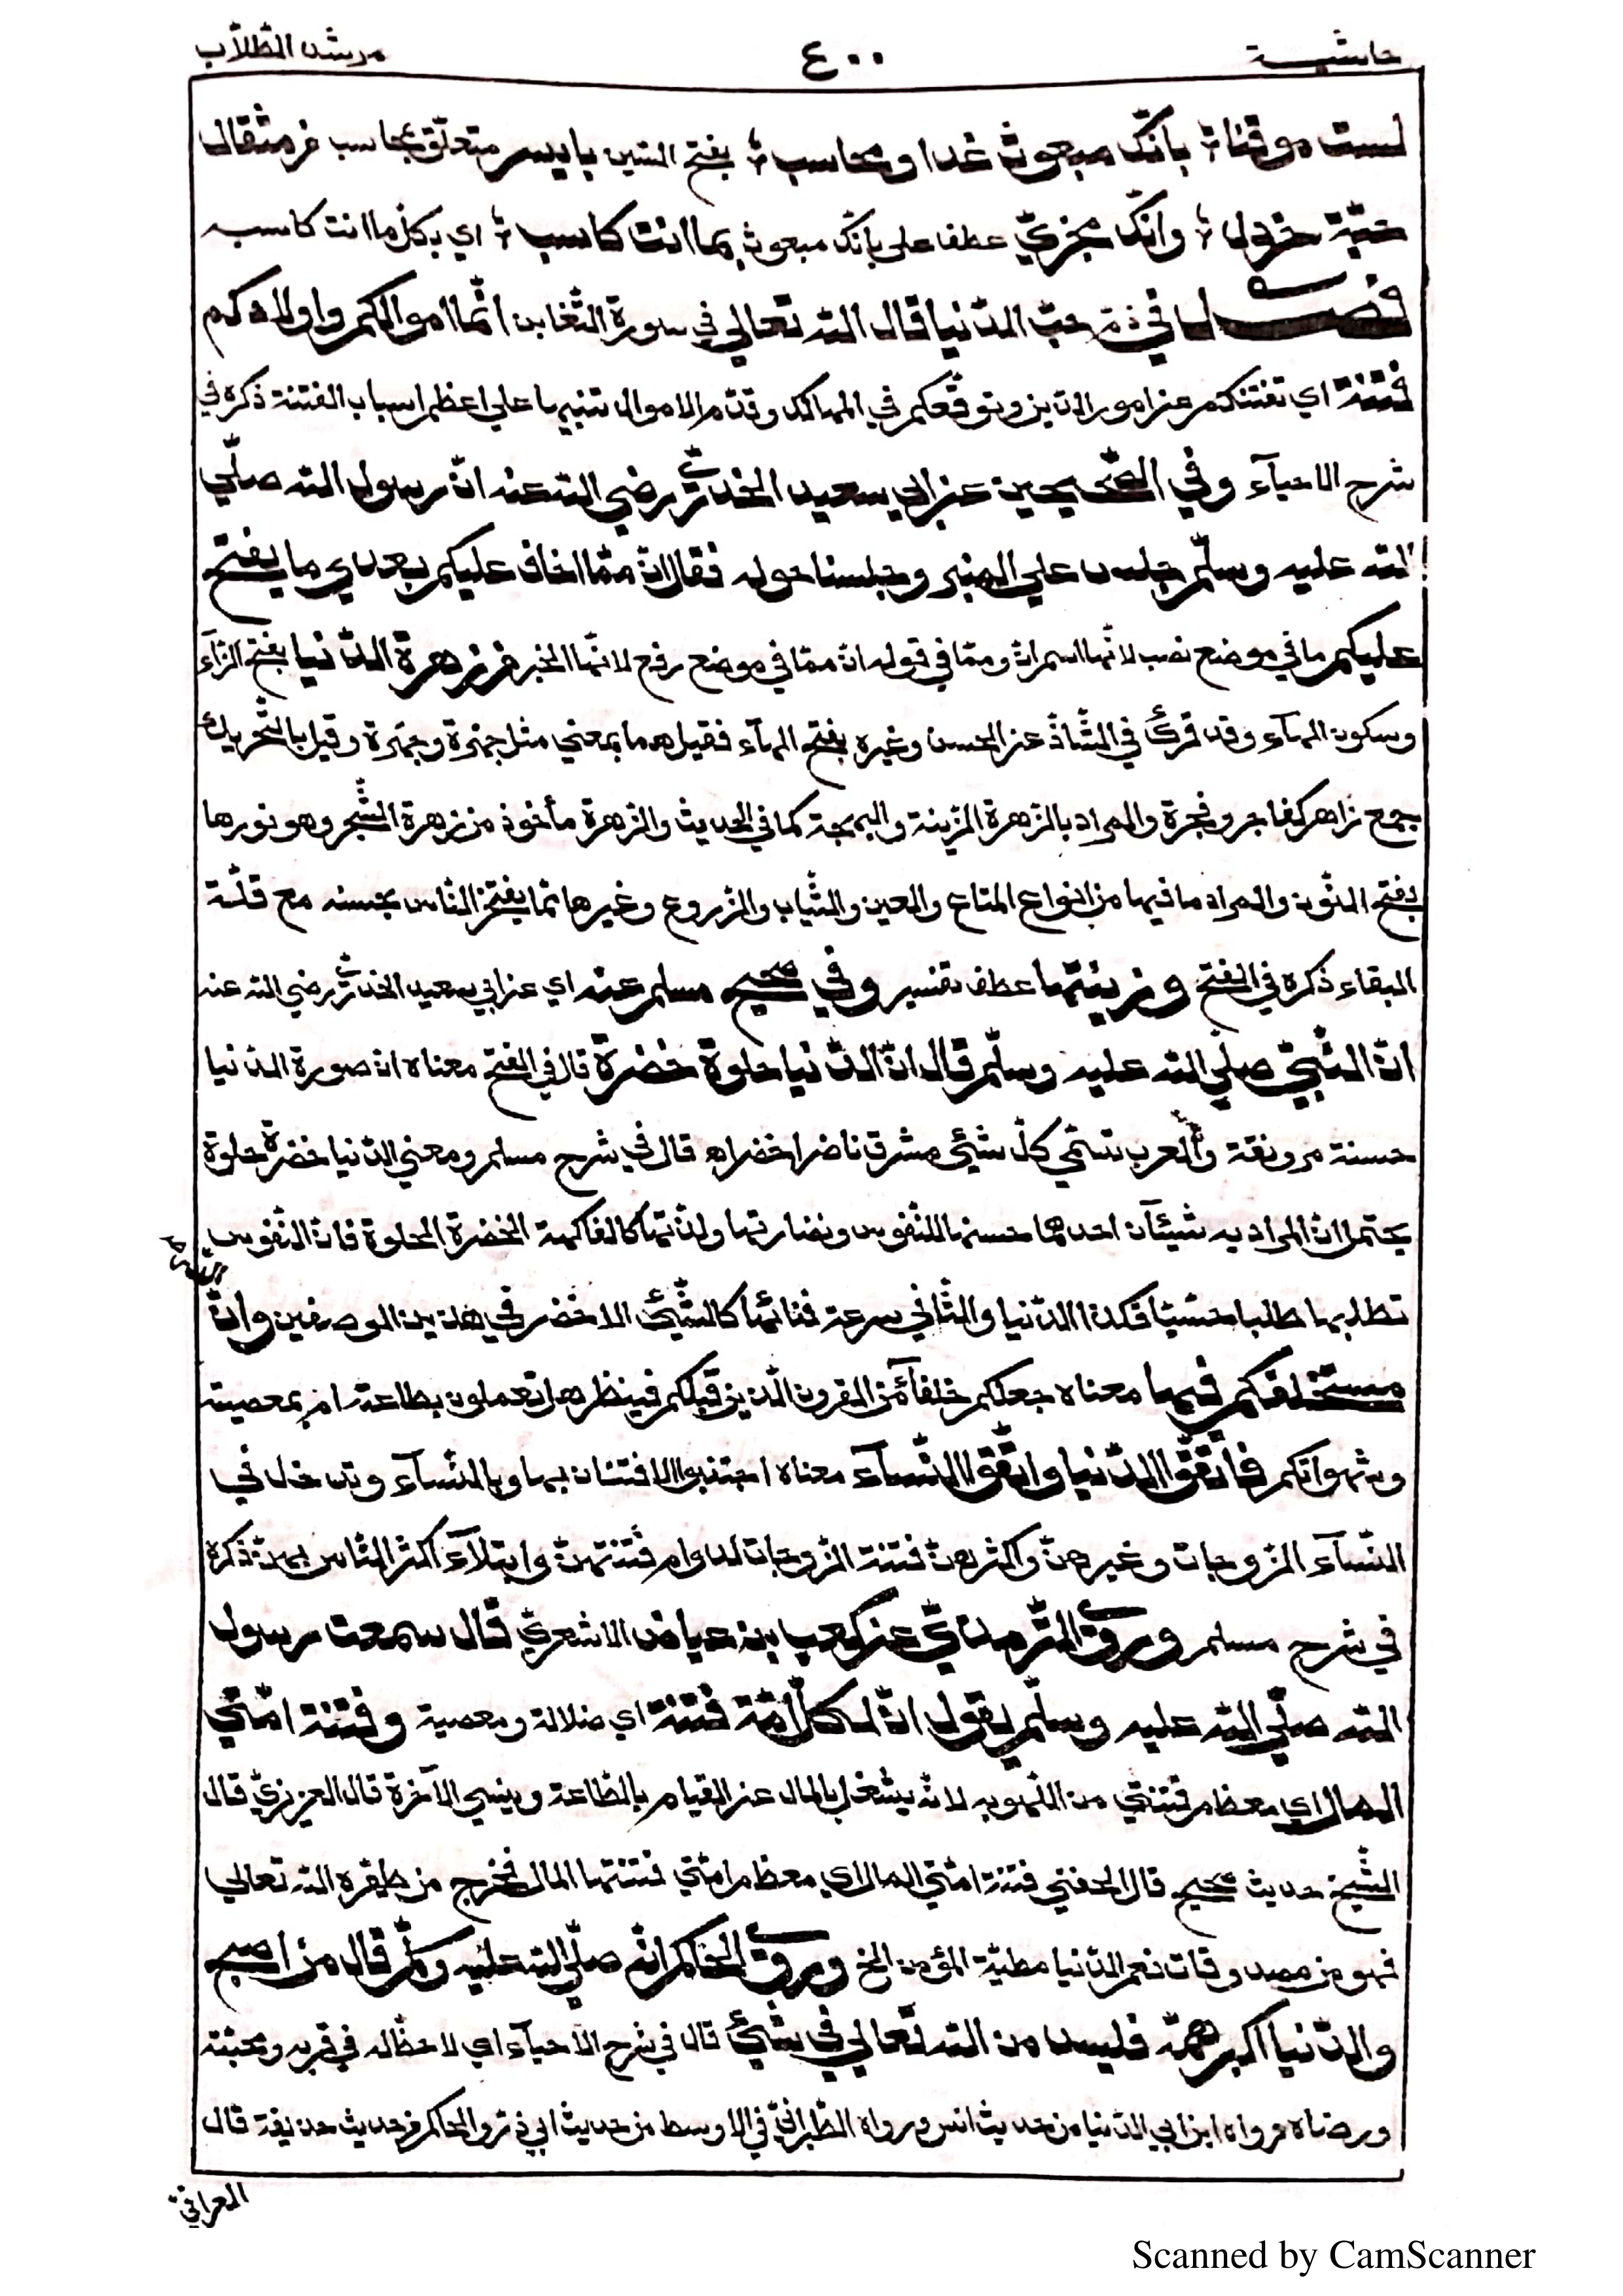 حاشية ٤٠٠ مرشد الطّلّاب
لست موقنا ؟ بانّك مبعوث غدا ومحاسب ؟ بفتح السّين بايسر متعلّق بمحاسب من مثقال
حبّة خردل ؟ وانّك مجزيّ عطف على بانّك مبعوث بما انت كاسب ؟ اي بكلّ ما انت كاسبه
فصل في ذمّ حبّ الدّنيا قال الله تعالى في سورة التّغابن انّما اموالكم واولادكم
فتنة اي تفتنكم عن امور الدّين وتوقّعكم في المهالك وقدّم الاموال تنبيها على اعظم اسباب الفتنة ذكره في
شرح الاحياء وفي الصّحيحين عن ابي سعيد الخدريّ رضي الله عنه انّ رسول الله صلّى
الله عليه وسلّم جلس على المنبر وجلسنا حوله فقال انّ ممّا اخاف عليكم بعدي ما يفتح
عليكم ما في موضع نصب لانّها اسم انّ وممّا في قوله انّ ممّا في موضع رفع لانّها الخبر من زهرة الدّنيا بفتح الزّاء
وسكون الهاء وقد قرئ في الشّاذّ عن الحسن وغيره بفتح الهاء فقيل هما بمعنى مثل جهرة وجهرة وقيل بالتّحريك
جمع زاهر كفاجر وفجرة والمراد بالزهرة الزّينة والبهجة كما في الحديث والزهرة مأخوذ من زهرة الشّجر وهو نورها
بفتح النّون والمراد ما فيها من انواع المتاع والعين والثّياب والزّروع وغيرها ممّا يفتخر النّاس بحسنه مع قلّة
البقاء ذكره في الفتح وزينتها عطف تفسير وفي صحيح مسلم عنه اي عن ابي سعيد الخدريّ رضي الله عنه
انّ النّبيّ صلّى الله عليه وسلّم قال انّ الدّنيا حلوة خضرة قال في الفتح معناه انّ صورة الدّنيا
حسنة مونقة والعرب تسمّي كلّ شيئ مشرق ناضر اخضر اه قال في شرح مسلم ومعنى الدّنيا خضرة حلوة
يحتمل انّ المراد به شيئآن احدهما حسنها للنّفوس ونضارتها ولذّتها كالفاكهة الخضرة الحلوة فانّ النّفوس
تطلبها طلبا حثيثا فكذا الدّنيا والثّاني سرعة فنائها كالشّيئ الاخضر في هذين الوصفين وانّ الله
مستخلفكم فيها معناه جعلكم خلفآء من القرون الّذين قبلكم فينظر هل تعملون بطاعته ام بمعصيته
وشهواتكم فاتّقوا الدّنيا واتّقوا النّسآء معناه اجتنبوا الافتتان بها وبالنّسآء وتدخل في
النّسآء الزّوجات وغيرهنّ واكثرهنّ فتنة الزّوجات لدوام فتنتهنّ وابتلآء اكثر النّاس بهنّ ذكره
في شرح مسلم وروى التّرمذيّ عن كعب بن عياض الاشعريّ قال سمعت رسول
الله صلّى الله عليه وسلّم يقول انّ لكلّ امّة فتنة اي ضلالة ومعصية وفتنة امّتي
المال اي معظم فتنتي من اللّهو به لانّه يشغل بالمال عن القيام بالطّاعة وينسي الآخرة قال العزيزيّ قال
الشّيخ حديث صحيح قال الحفني فتنة امّتي المال اي معظم امّتي فتنتها المال فخرج من طهّره الله تعالى
فهو من مصدوقات نعم الدّنيا مطيّة المؤمن الخ وروى الحاكم انّه صلّى الله عليه وسلّم قال من اصبح
والدّنيا اكبر همّه فليس من الله تعالى في شيئ قال في شرح الاحيآء اي لا حظّ له في قربه ومحبّته
ورضاه رواه ابن ابي الدّنيا من حديث انس ورواه الطّبرانيّ في الاوسط من حديث ابي ذرّ والحاكم من حديث حذيفة قال
العراقيّ
Scanned by CamScanner